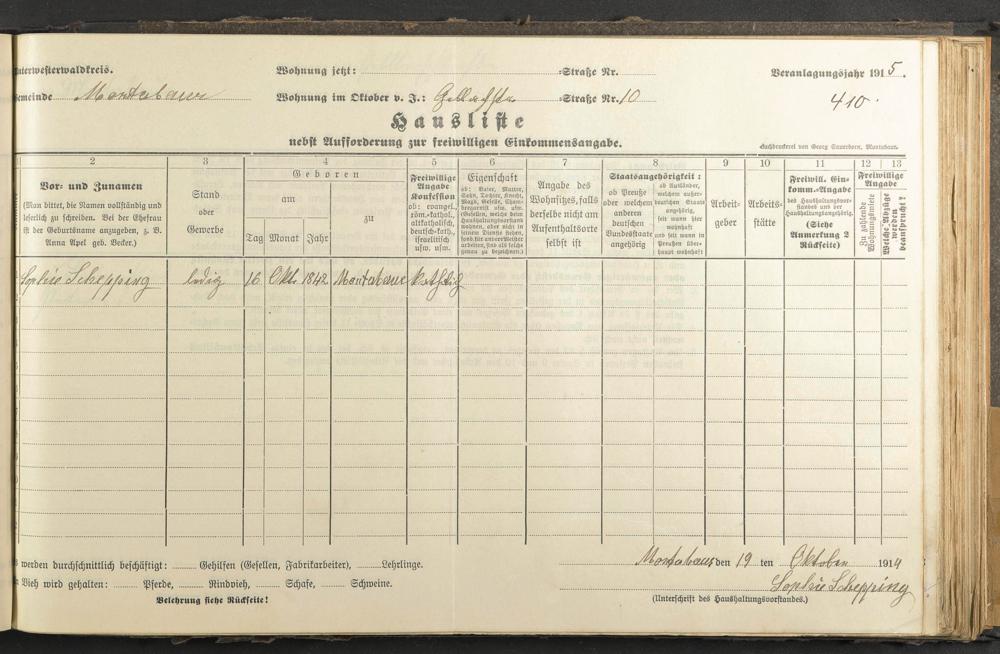 Unterwesterwaldkreis.
Wohnung jetzt: =Straße Nr.
Veranlagungsjahr 1915.
Gemeinde Montabaur
Wohnung im Oktober v. J.: =Straße Nr. 10
410.
Hausliste
nebst Aufforderung zur freiwilligen Einkommensangabe.
Buchdruckerei von Georg Sauerborn, Montabaur.
2 3 4 5 6 7 8 9 10 11 12 13
Vor- und Zunamen
(Man bittet, die Namen vollständig und
leserlich zu schreiben. Bei der Ehefrau
ist der Geburtsname anzugeben, z. B.
Anna Apel geb. Becker.)
Stand
oder
Gewerbe
Geboren
am
zu
Tag Monat Jahr
Freiwillige
Angabe
Konfession
ob: evangel.,
röm.-kathol.,
altkatholisch,
deutsch-kath.,
israelitisch
usw. usw.
Eigenschaft
ob: Vater, Mutter,
Sohn, Tochter, Knecht,
Magd, Geselle,
usw. usw.
Angabe des
Wohnsitzes, falls
derselbe nicht am
Aufenthaltsorte
selbst ist
Staatsangehörigkeit:
ob Preuße
oder welchem
anderen
deutschen
Bundesstaate
angehörig
ob Ausländer,
welchem außer-
deutschen Staate
angehörig,
seit wann hier
wohnhaft
und seit wann in
Preußen über-
haupt wohnhaft
Arbeit-
geber
Arbeits-
stätte
Freiwill. Ein-
komm.-Angabe
des Haushaltungsvor-
standes und der
Haushaltungsangehörig.
(Siehe
Anmerkung 2
Rückseite)
Freiwillige
Angabe
Zu zahlende
Wohnungsmiete
Welche Abzüge
werden
beansprucht?
Sophie Schepping ledig 16 Okt. 1842 Montabaur
werden durchschnittlich beschäftigt: Gehilfen (Gesellen, Fabrikarbeiter), Lehrlinge.
Vieh wird gehalten: Pferde, Rindvieh, Schafe, Schweine.
Belehrung siehe Rückseite!
Montabaur den 19 ten Oktober 1914
Sophie Schepping
(Unterschrift des Haushaltungsvorstandes.)